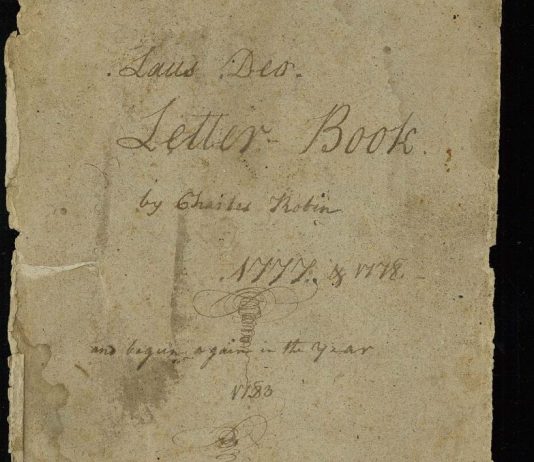 Laus Deo.
Letter Book
by Charles Robin
1777. & 1778.
and begun again in the Year
1783